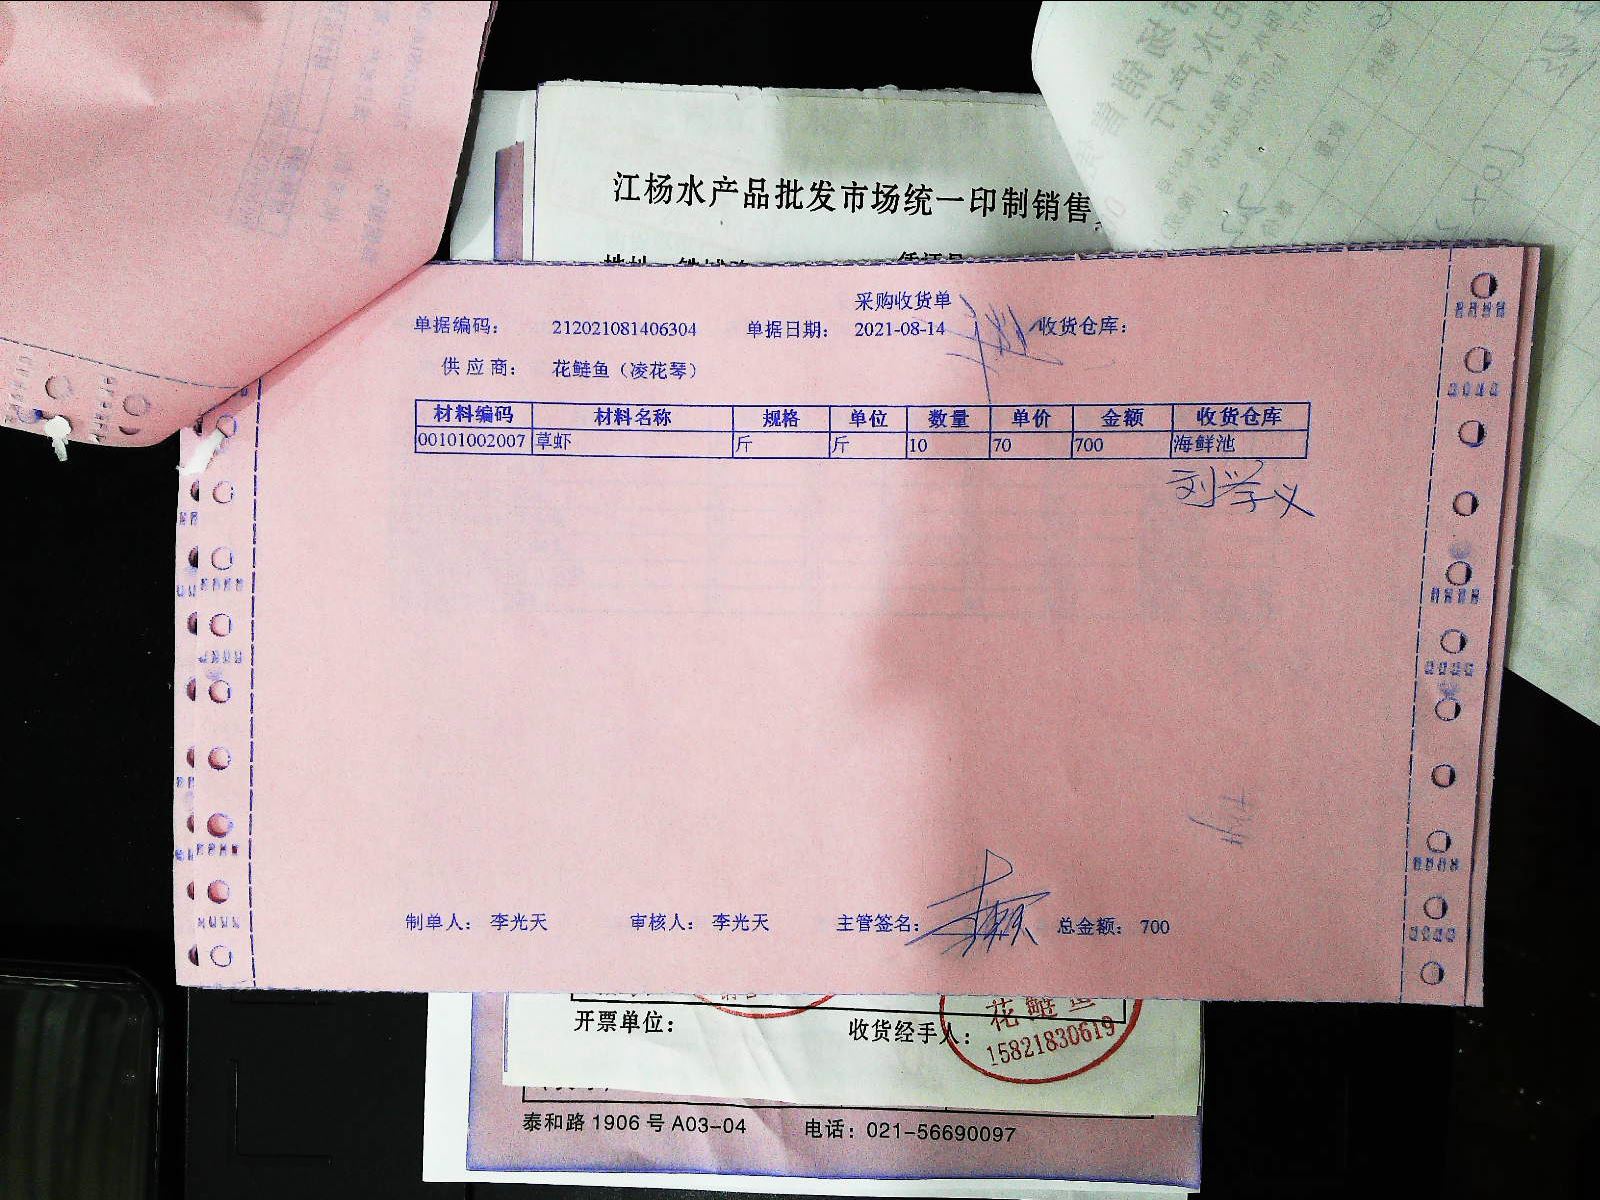 江杨水产品批发市场统一印制销售
采购收货单
单据编码： 212021081406304 单据日期： 2021-08-14 收货仓库：
供应商： 花鲢鱼（凌花琴）
材料编码 材料名称 规格 单位 数量 单价 金额 收货仓库
00101002007 草虾 斤 斤 10 70 700 海鲜池
刘学义
制单人： 李光天 审核人： 李光天 主管签名： 总金额： 700
花鲢鱼
开票单位： 收货经手人：
15821830619
泰和路1906号A03-04 电话：021-56690097